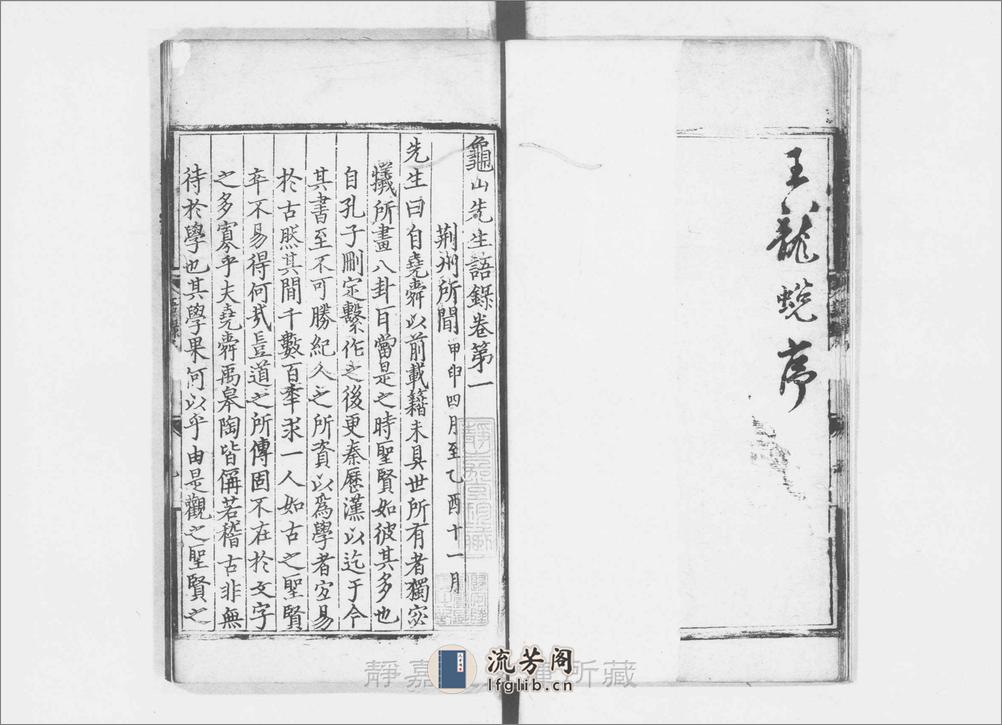 王龍蛻序
龜山先生語錄卷第一
荆州所聞 甲申四月至乙酉十一月
先生曰自堯舜以前載籍未具世所有者獨宓
犧所畫八卦耳當是之時聖賢如彼其多也
自孔子刪定繫作之後更秦歷漢以迄于今
其書至不可勝紀人之所資以為學者宜易
於古然其間千數百年求一人如古之聖賢
卒不易得何哉豈道之所傳固不在於文字
之多寡乎夫堯舜禹皋陶皆偁若稽古非無
待於學也其學果何以乎由是觀之聖賢之
靜嘉 所藏
流芳阁
lfglib.cn